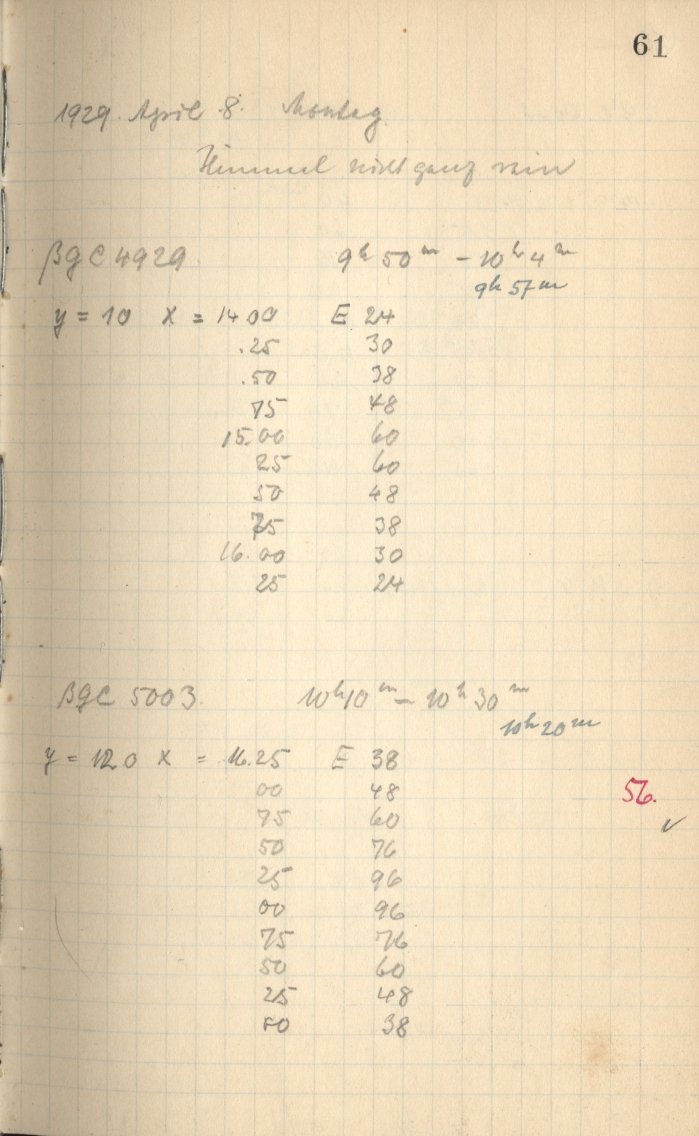 61
1929. April 8. Montag
Himmel nicht ganz rein
βGC 4929. 9h 50m – 10h 4m
9h 57m
y = 10 x = 14 00 E 24
.25 30
.50 38
75 48
15.00 60
25 60
50 48
75 38
16.00 30
25 24
βGC 5003. 10h 10m – 10h 30m
10h 20m
y = 12.0 x = 16.25 E 38
00 48
56.
75 60
✓
50 76
25 96
00 96
75 76
50 60
25 48
00 38